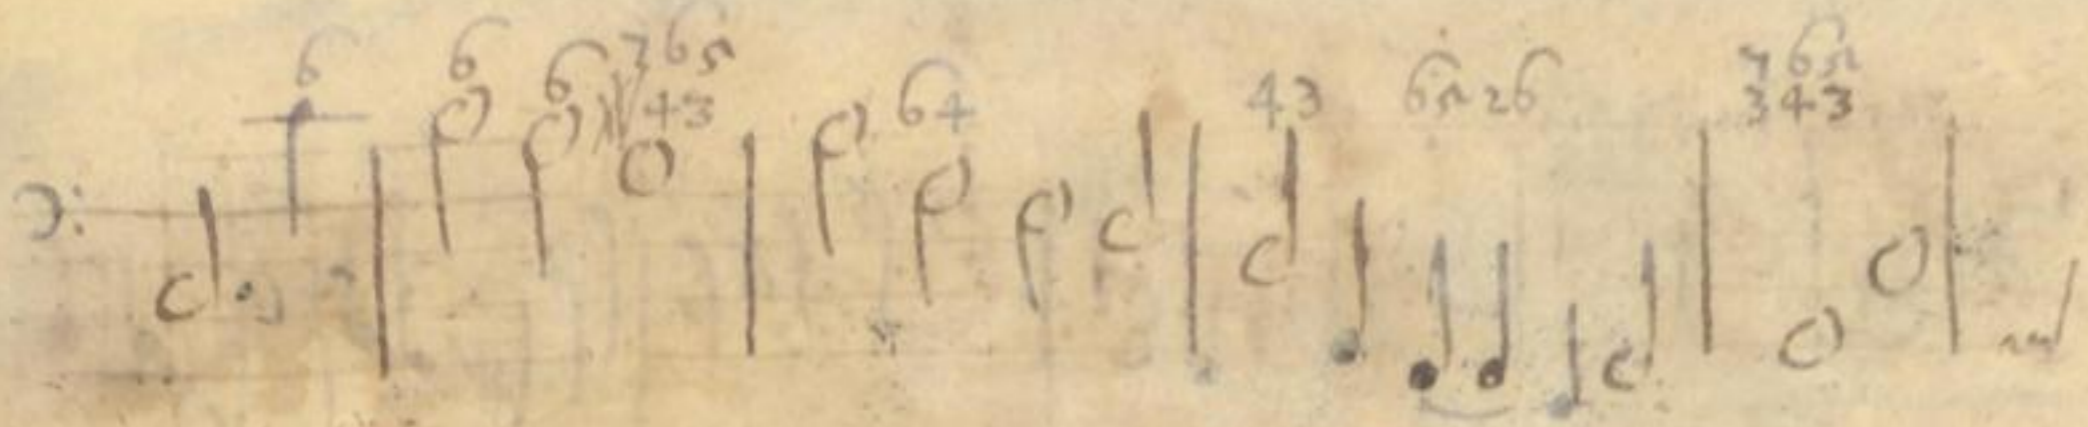 6 6 6 765 64 43 6526 765
43 343